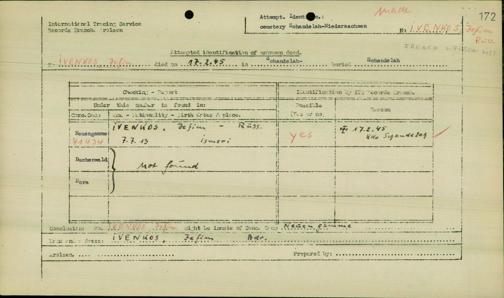 172
made
International Tracing Service
Records Branch. Arolsen
Attempt. Identific.:
cemetery Schandelah-Niedersachsen
No IVENKOS, Jefim
Russ.
Attempted identification of unknown dead.
IVENKOS, Jefim died on 17.2.45 in Schandelah- buried Schandelah
Checking - Report
Identification by ITS Records Branch.
Under this number is found in:
Possible
(Yes or no)
Reason
Conc.Camp Name - Nationality - Birth date & place.
Neuengamme IVENKOS, Jefim - Russ.
41434 7.7.13 Ismori
yes
17.2.45
Kdo Schandelah
Buchenwald
not found
Dora
Conclusion: No. IVENKOS, Jefim might be inmate of Conc. Camp Neuengamme
IVENKOS, Jefim
Arolsen,
Prepared by: